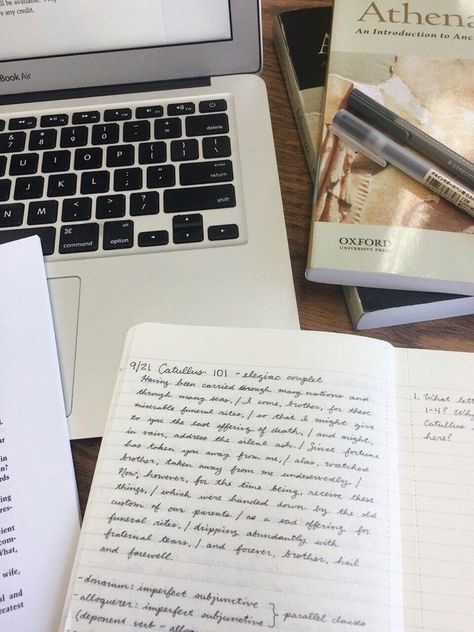 ill be available.
e any credit.
Book Air
delete
return
shift
command
option
control
option
Athena
An Introduction to Anc
OXFORD
UNIVERSITY PRESS
9/21 Catullus 101 - elegiac couplet
Having been carried through many nations and
through many seas, / I come, brother, for these
miserable funeral rites, / so that I might give
to you the last offering of death, / and might,
in vain, address the silent ash. / Since fortune
has taken you away from me, / alas, wretched
brother, taken away from me undeservedly, /
Now, however, for the time being, receive these
things, / which were handed down by the old
custom of our parents / as a sad offering for
funeral rites, / dripping abundantly with
fraternal tears, / and forever, brother, hail
and farewell.
- donarem: imperfect subjunctive
- alloquerer: imperfect subjunctive } parallel clauses
(deponent verb - alloq
1. What lett
1-4? Why
Catullus
here?
wife,
al and
reatest